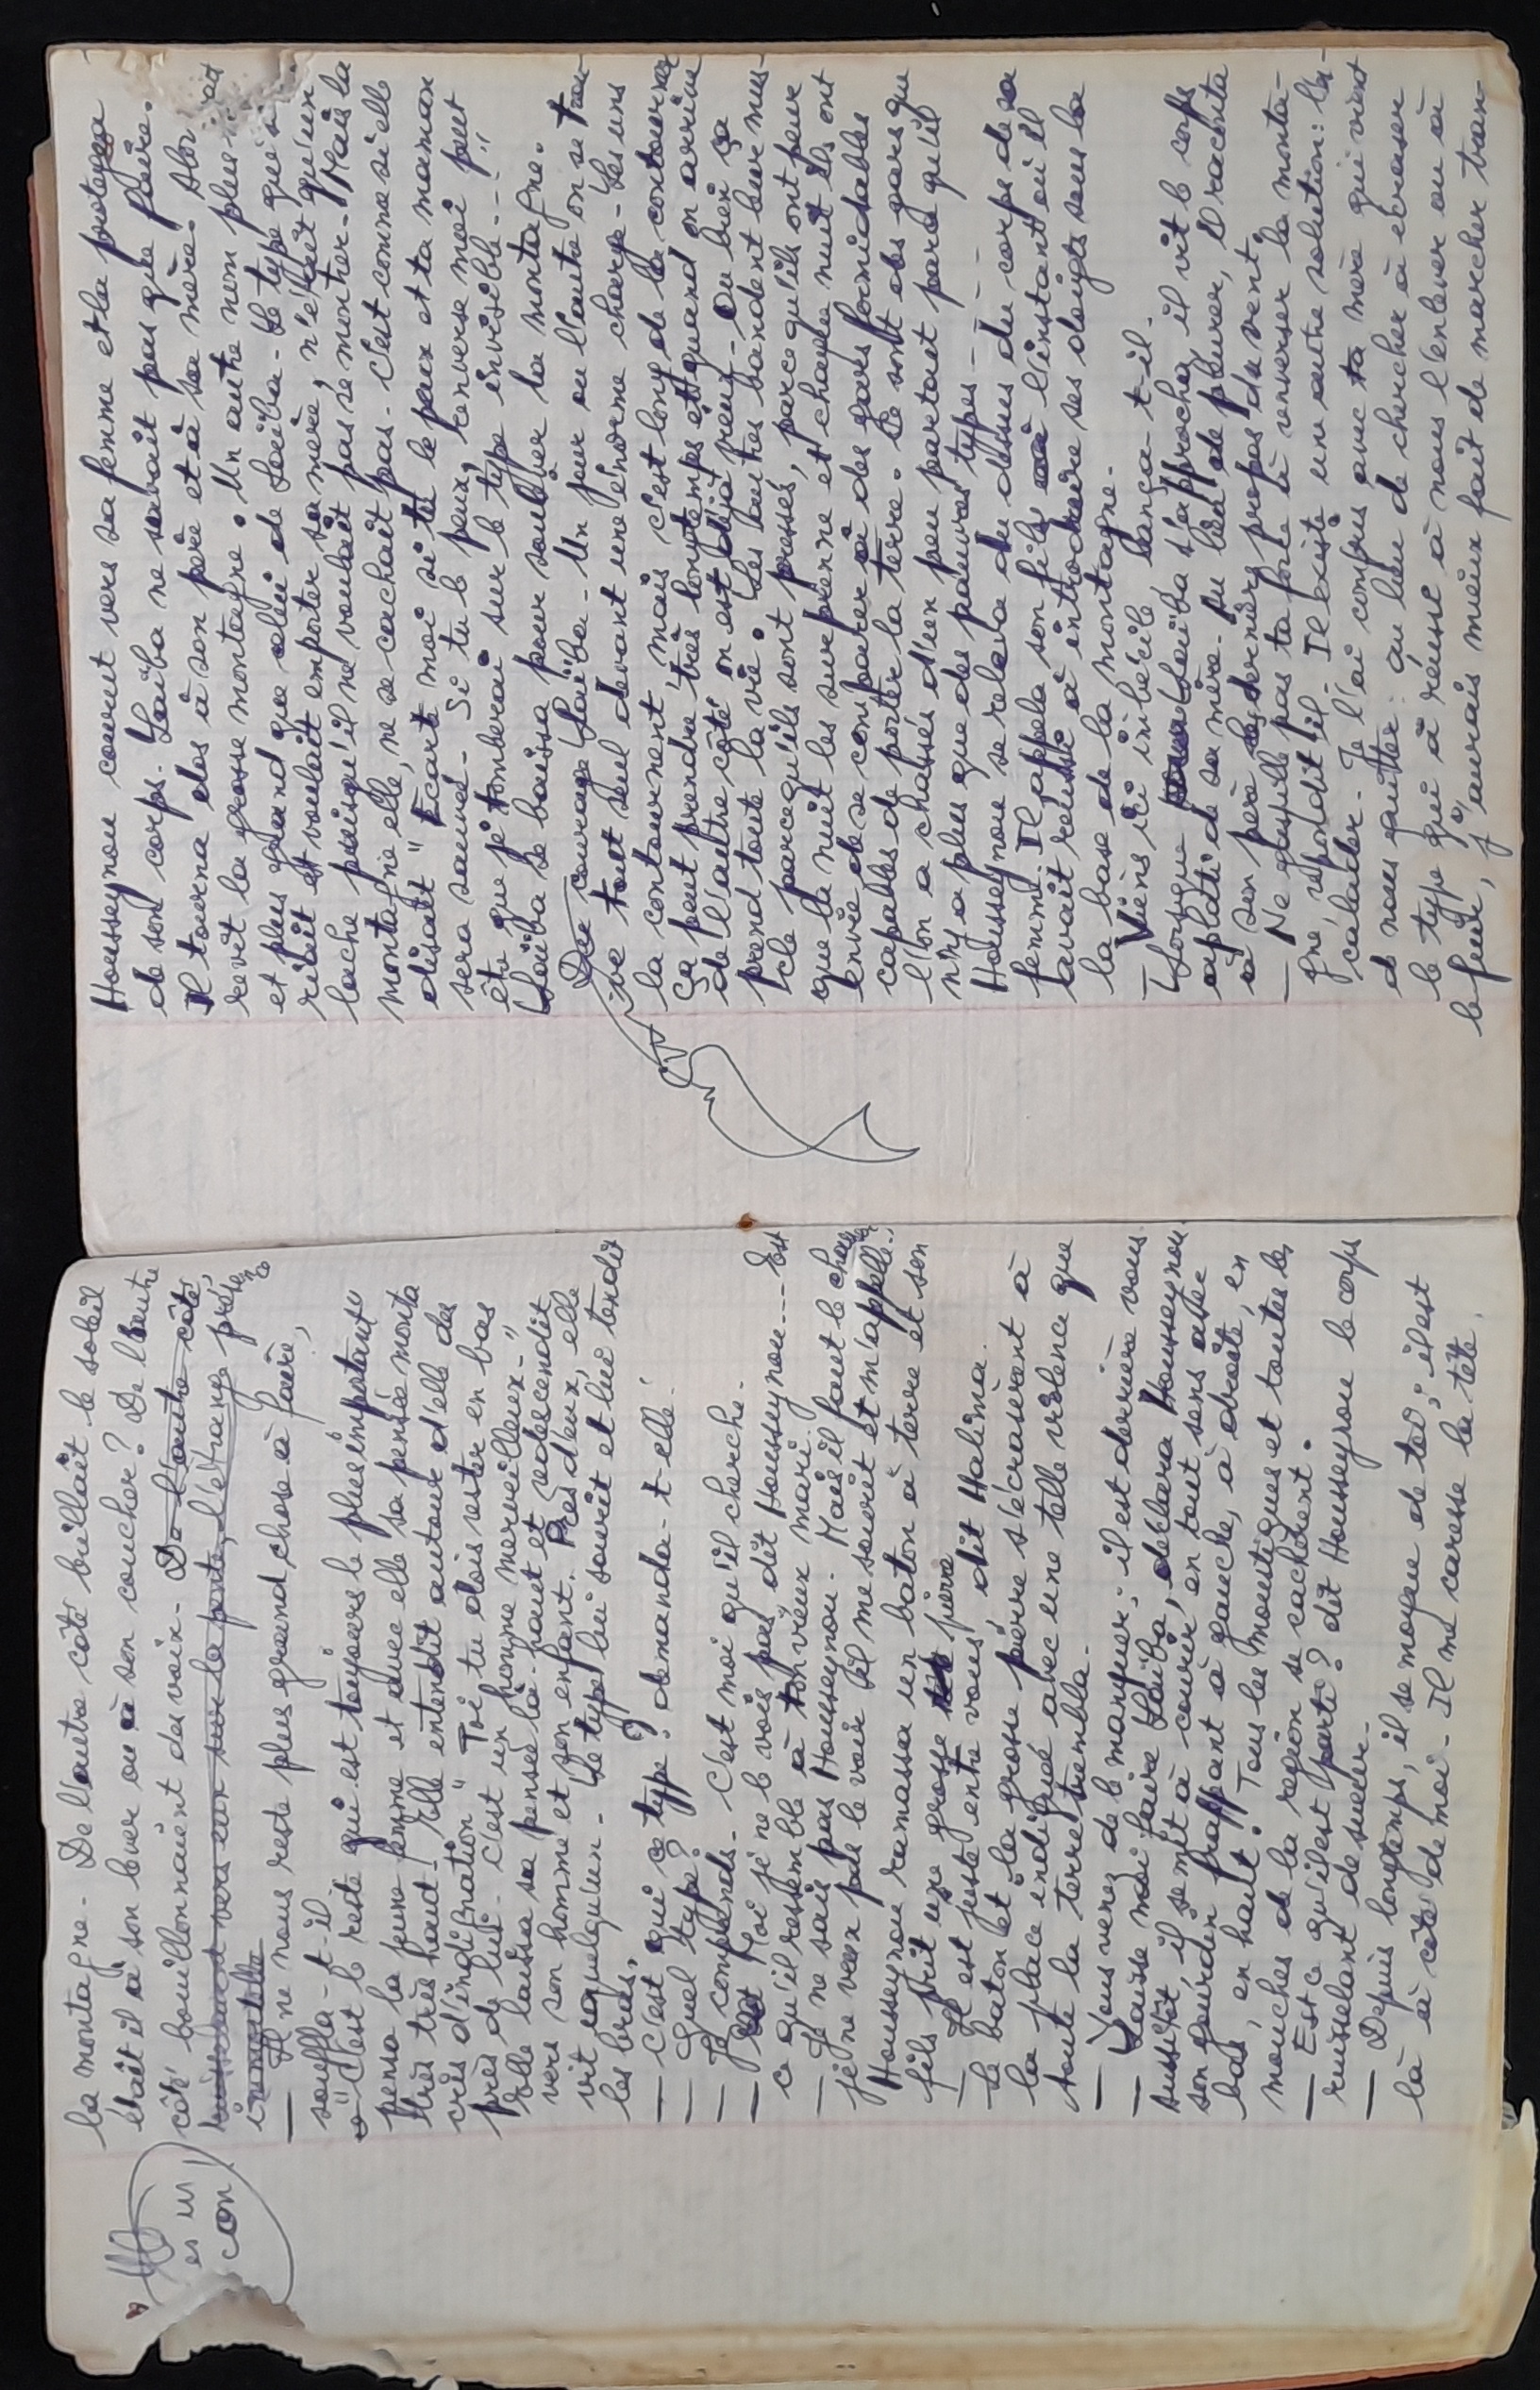 la montagne - De l'autre côté brillait le soleil
était il à son lever ou à son coucher ? De l'autre
côté bouillonnaient des voix - De l'autre côté,
inquiétant vers eux sur la pente, l'étrange
— Il ne nous reste plus grand chose à faire,
souffla-t-il
— "C'est le reste qui est toujours le plus important"
pensa la jeune femme et avec elle sa pensée monta
très très haut - Elle entendit autour d'elle des
cris d'indignation " Toi, tu dois rester en bas
près de lui - C'est un homme merveilleux - "
Elle laissa sa pensée là-haut et redescendit
vers son homme et son enfant. Près d'eux, elle
vit quelqu'un - Le type lui sourit et lui tendit
les bras,
— C'est qui ce type ? demanda-t-elle.
— Quel type ?
— Je comprends - C'est moi qu'il cherche.
— Moi je ne le vois pas, dit Housseynou --- Est
ce qu'il ressemble à ton vieux mari
— Je ne sais pas Housseynou - Mais il faut le chasser
je ne veux pas le voir. Il me sourit et m'appelle..
Housseynou ramassa un baton à terre et son
fils prit une grosse pierre
— Il est juste entre vous, dit Halima.
Le baton et la grosse pierre s'écrasèrent à
la place indiquée avec une telle violence que
toute la terre trembla -
— Vous venez de le manquer ; il est derrière vous
— Laisse moi faire Laïba, déclara Housseynou
Aussitôt il se mit à courir, en tout sens avec
son gourdin frappant à gauche, à droite, en
bas, en haut. Tous les moustiques et toutes les
mouches de la région se cachèrent.
— Est ce qu'il est parti ? dit Housseynou le corps
ruisselant de sueur -
— Depuis longtemps, il se moque de toi ; il est
là à côté de moi - Il me caresse la tête.
es un
con
Housseynou courut vers sa femme et la protégea
de son corps. Laïba ne savait pas quoi faire.
Il tourna dos à son père et à sa mère. Alors
revit la grosse montagne. Un autre nom plus
et plus grand que celui de Laïba - Le type qui
riait et voulait emporter sa mère, n'était qu'un
lâche puisqu'il ne voulait pas se montrer - Mais la
montagne elle, ne se cachait pas - C'est comme si elle
disait " Écarte moi si tu le peux et ta maman
sera sauvée - Si tu le peux, renverse moi peut
être que je tomberai sur le type invisible -- "
Laïba se baissa pour soulever la montagne.
courage Laïba - Un jour ou l'autre on se trou-
ve tout seul devant une énorme charge - Les uns
la contournent, mais c'est long de la contourner
Ça peut prendre très longtemps et quand on arrive
de l'autre côté on est déjà vieux - Ou bien ça
prend toute la vie. Les autres bandent leur mus-
cle parce qu'ils sont pressés, parce qu'ils ont peur
que la nuit les surprenne et chaque nuit ils ont
envie de se comparer à des gars formidables
capables de porter la terre. Ce sont des gars que
l'on a chassés d'un peu partout parce qu'il
n'y a plus que des pauvres types - - -
Housseynou se releva au dessus du corps de sa
femme. Il appela son fils à l'instant où il
avait réussi à introduire ses doigts sous la
la base de la montagne.
— Viens ici imbécile lança-t-il.
Lorsque Laïba s'approcha, il vit le corps
aplati de sa mère. Au lieu de pleurer, il raconta
à son père les derniers propos du vent.
— Ne gaspille pas ta force à renverser la monta-
gne répondit il - Il existe une autre solution : l'es-
calader - Je l'ai compris avec ta mère qui vient
de nous quitter : au lieu de chercher à écraser
le type qui a réussi à nous l'enlever ou à
le fuir, j'aurais mieux fait de marcher tran-